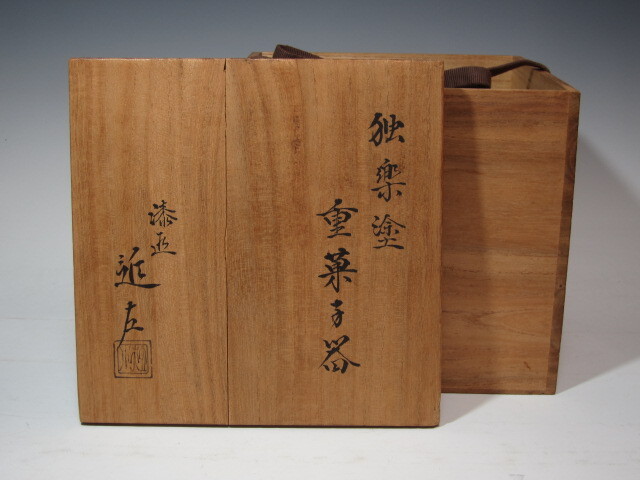 独楽塗
重菓子器
漆匠
近左